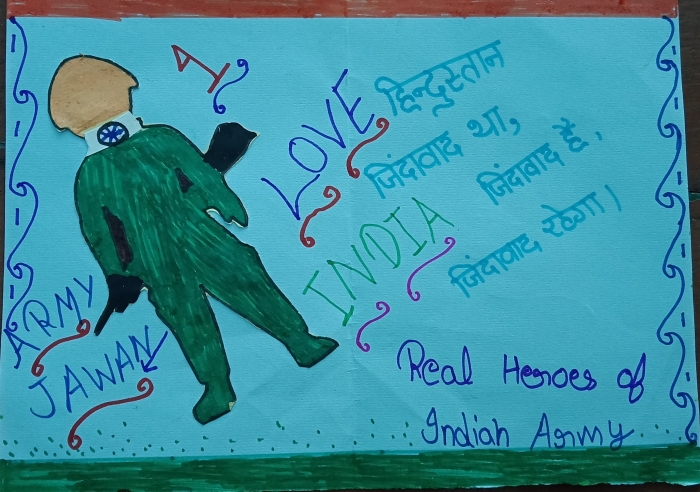 I
LOVE
INDIA
हिन्दुस्तान
जिंदाबाद था,
जिंदाबाद है,
जिंदाबाद रहेगा।
ARMY
JAWAN
Real Heroes of
Indian Army